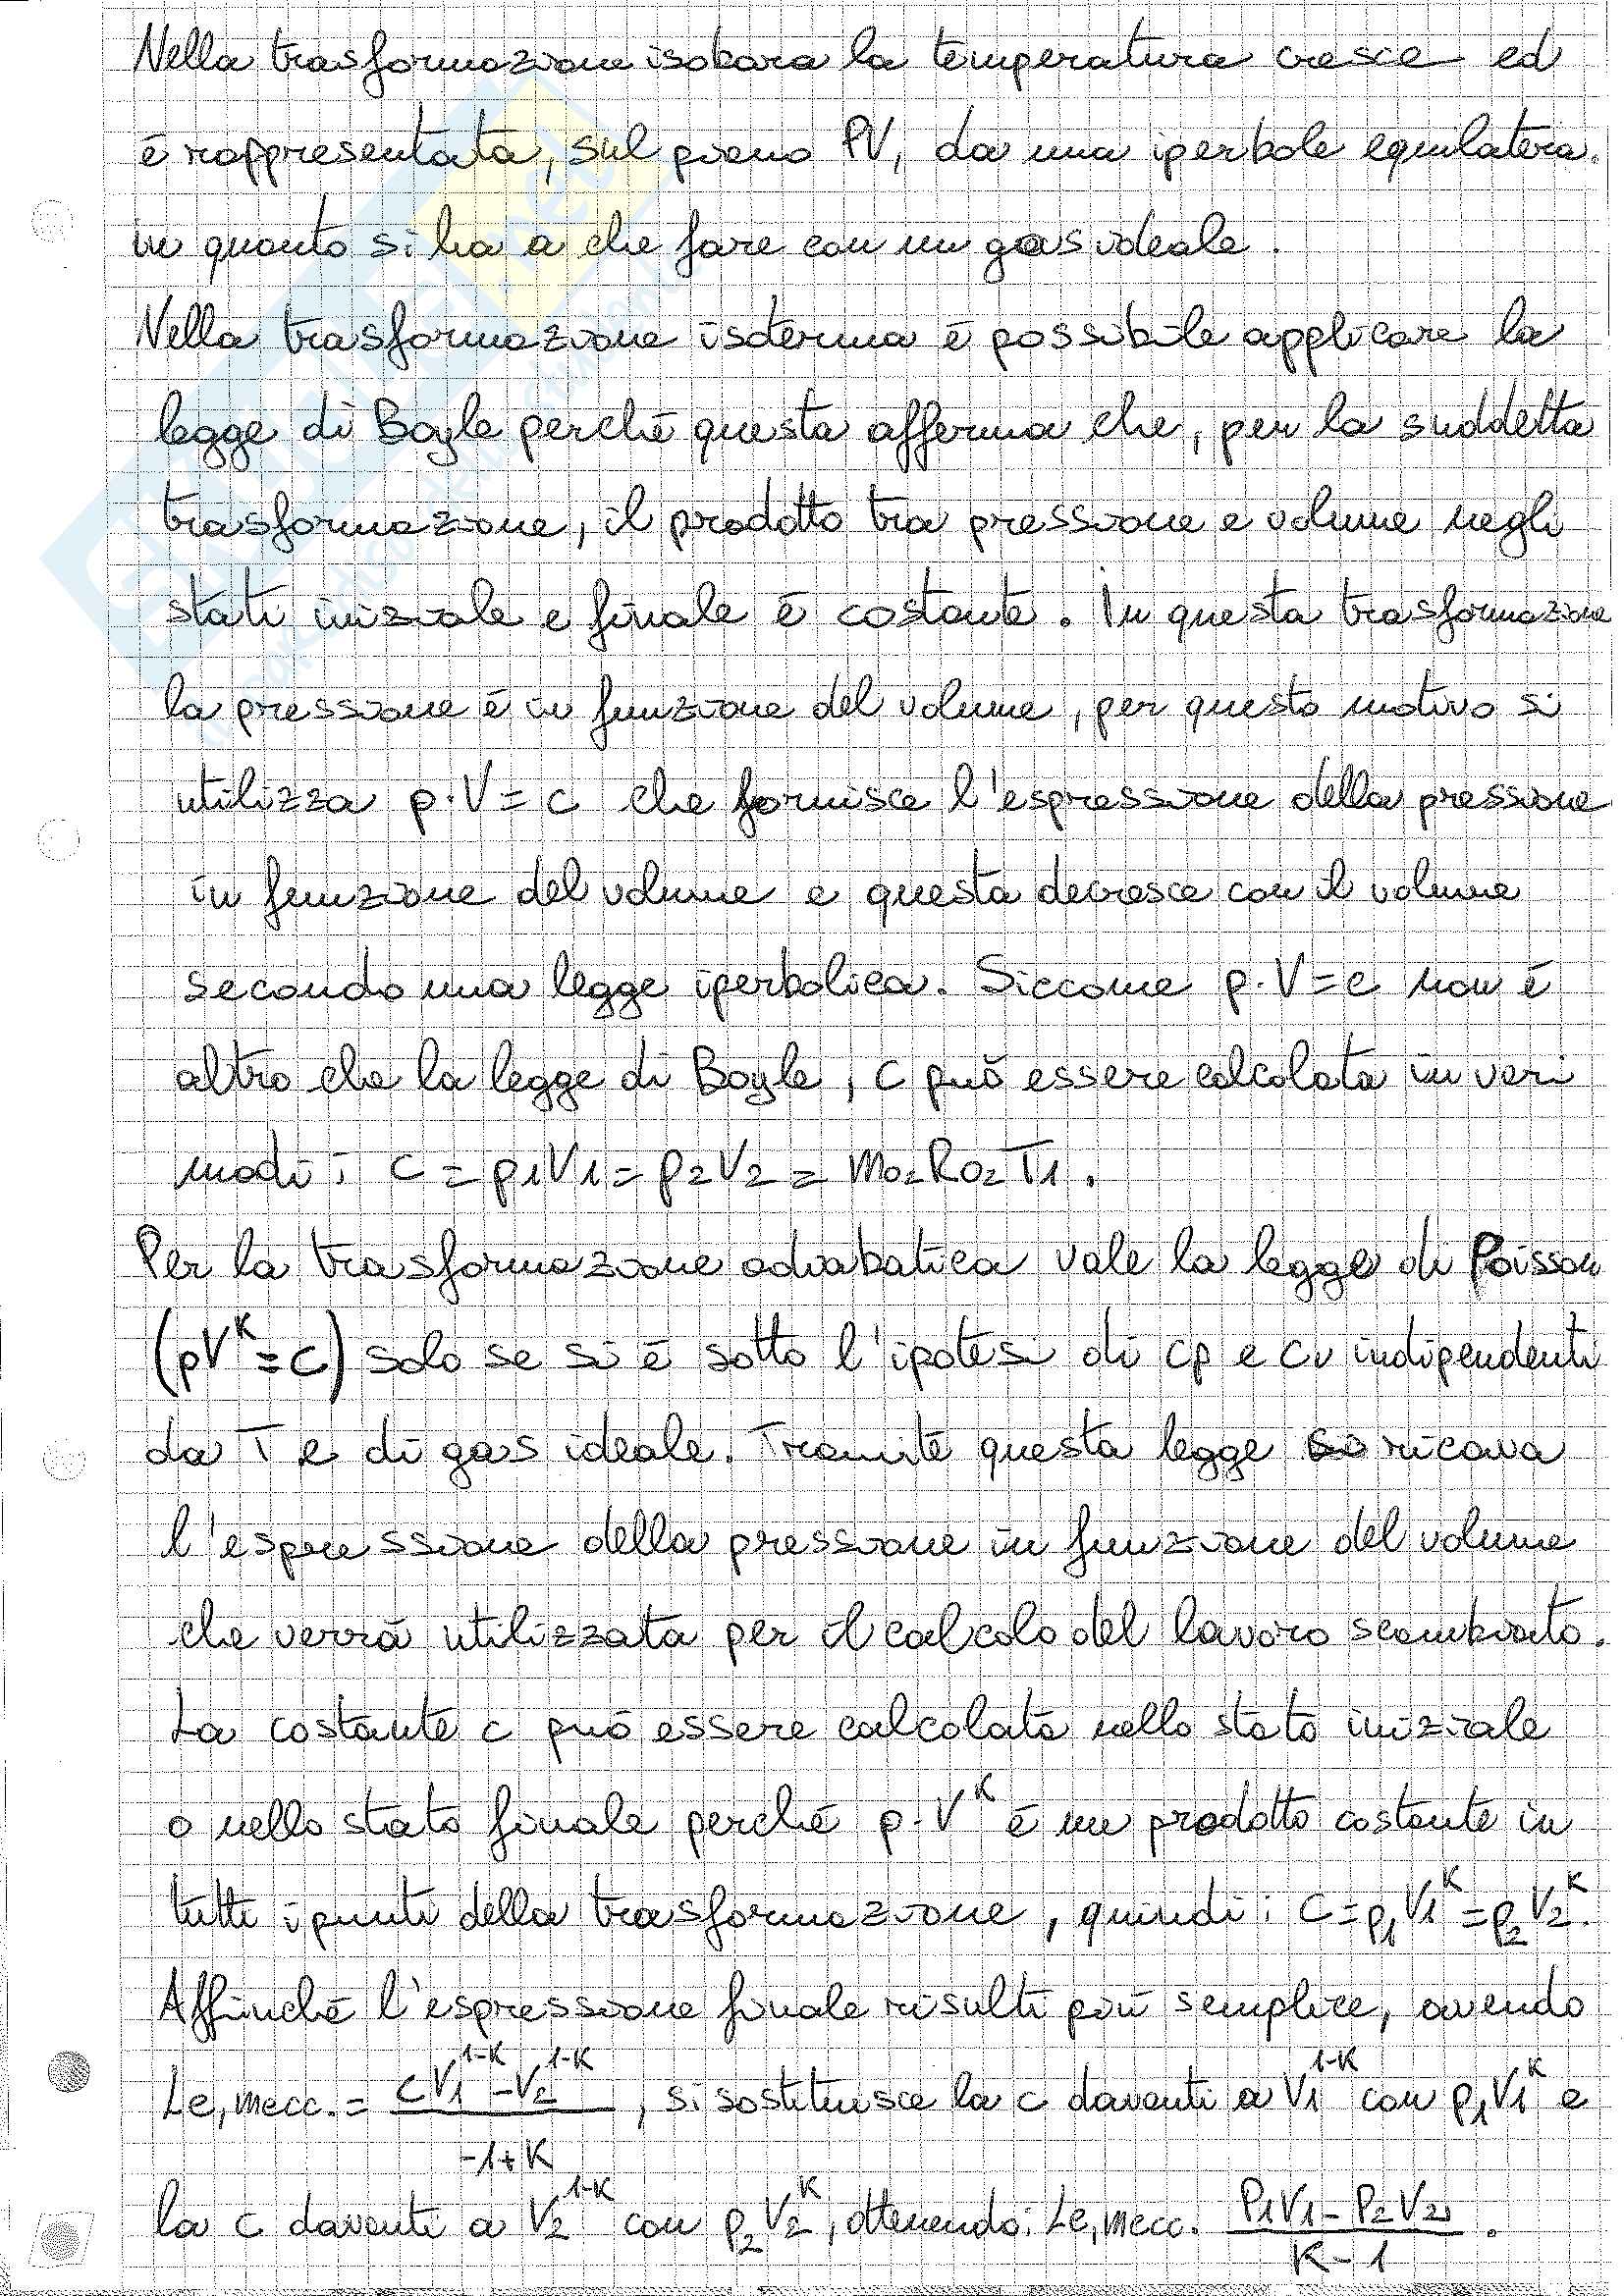 Nella trasformazione isobara la temperatura cresce ed
é rappresentata, sul piano PV, da una iperbole equilatera.
in quanto si ha a che fare con un gas ideale.
Nella trasformazione isoterma é possibile applicare la
legge di Boyle perché questa afferma che, per la suddetta
trasformazione, il prodotto tra pressione e volume negli
stati iniziale e finale é costante. In questa trasformazione
la pressione é in funzione del volume, per questo motivo si
utilizza p·V=c che fornisce l'espressione della pressione
in funzione del volume e questa decresce con il volume
secondo una legge iperbolica. Siccome p·V=c non é
altro che la legge di Boyle, c può essere calcolata in vari
modi: C = p₁V₁ = p₂V₂ = mo₂Ro₂T₁.
Per la trasformazione adiabatica vale la legge di Poisson
(pVᴷ=c) solo se si é sotto l'ipotesi di cp e cv indipendenti
da T e di gas ideale. Tramite questa legge si ricava
l'espressione della pressione in funzione del volume
che verrá utilizzata per il calcolo del lavoro scambiato.
La costante c può essere calcolata nello stato iniziale
o nello stato finale perché p·Vᴷ é un prodotto costante in
tutti i punti della trasformazione, quindi: C=p₁V₁ᴷ=p₂V₂ᴷ.
Affinché l'espressione finale risulti piú semplice, avendo
Le,mecc. = (cV₁¹⁻ᴷ - V₂¹⁻ᴷ)/(-1+K), si sostituisce la c davanti a V₁¹⁻ᴷ con p₁V₁ᴷ e
la c davanti a V₂¹⁻ᴷ con p₂V₂ᴷ, ottenendo: Le,mecc. (P₁V₁ - P₂V₂)/(K-1).